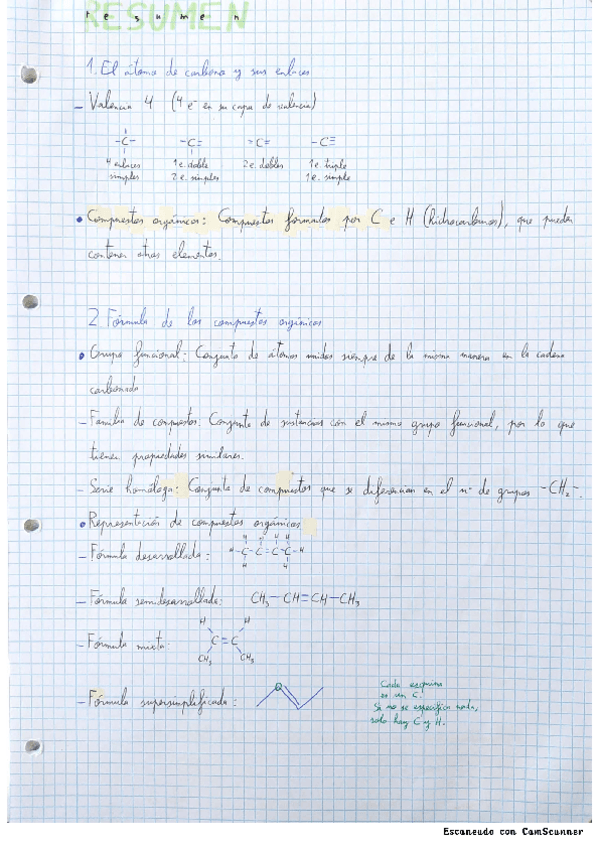 RESUMEN
resumen
1. El átomo de carbono y sus enlaces
- Valencia 4 (4 e⁻ en su capa de valencia)
-C- -C= =C= -C≡
4 enlaces 1 e. doble 2 e. dobles 1 e. triple
simples 2 e. simples 1 e. simple
• Compuestos orgánicos: Compuestos formados por C e H (hidrocarburos), que pueden
contener otros elementos.
2. Fórmula de los compuestos orgánicos
• Grupo funcional: Conjunto de átomos unidos siempre de la misma manera en la cadena
carbonada
- Familia de compuestos: Conjunto de sustancias con el mismo grupo funcional, por lo que
tienen propiedades similares.
- Serie homóloga: Conjunto de compuestos que se diferencian en el nº de grupos -CH₂-.
• Representación de compuestos orgánicos
H H H H
- Fórmula desarrollada: H-C-C=C-C-H
H H
- Fórmula semidesarrollada: CH₃-CH=CH-CH₃
H H
- Fórmula mixta: C=C
CH₃ CH₃
- Fórmula supersimplificada:
Cada esquina
es un C.
Si no se especifica nada,
solo hay C y H.
Escaneado con CamScanner